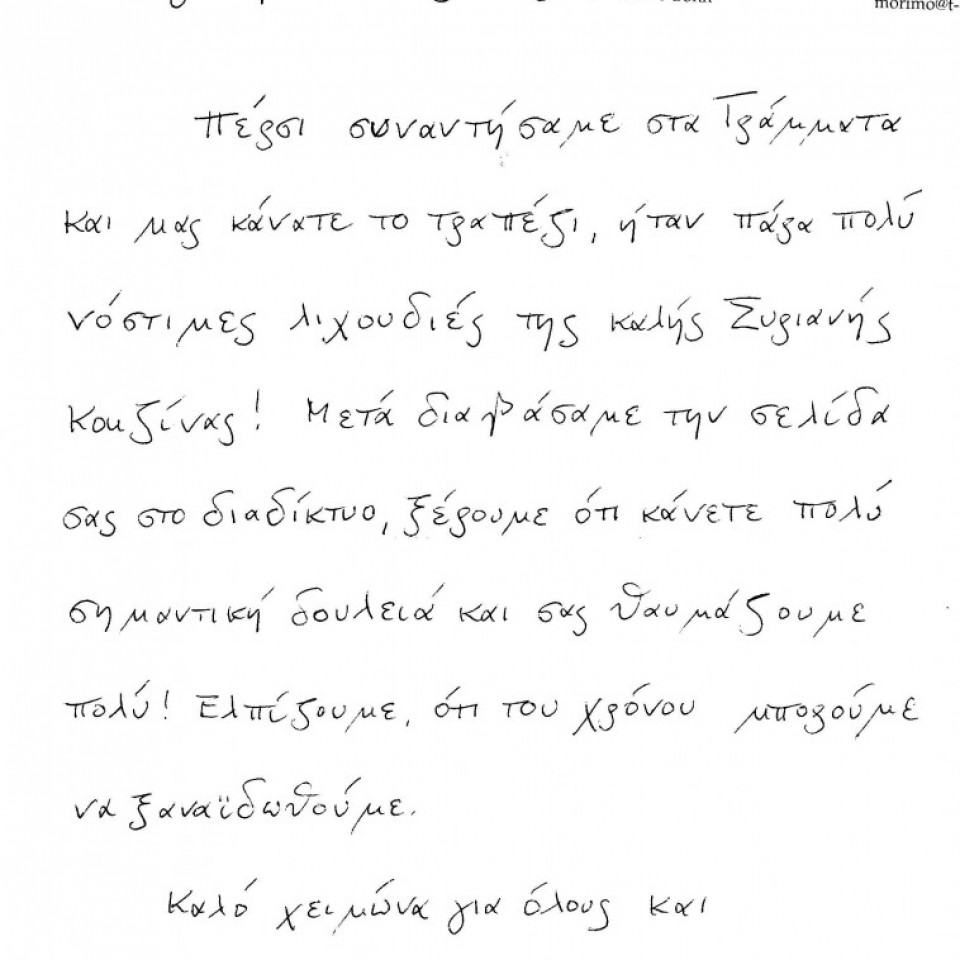 morimo@t-
Πέρσι συναντήσαμε στα Γράμματα
και μας κάνατε το τραπέζι, ήταν πάρα πολύ
νόστιμες λιχουδιές της καλής Συριανής
Κουζίνας! Μετά διαβάσαμε την σελίδα
σας στο διαδίκτυο, ξέρουμε ότι κάνετε πολύ
σημαντική δουλειά και σας θαυμάζουμε
πολύ! Ελπίζουμε, ότι του χρόνου μπορούμε
να ξαναϊδωθούμε.
Καλό χειμώνα για όλους και